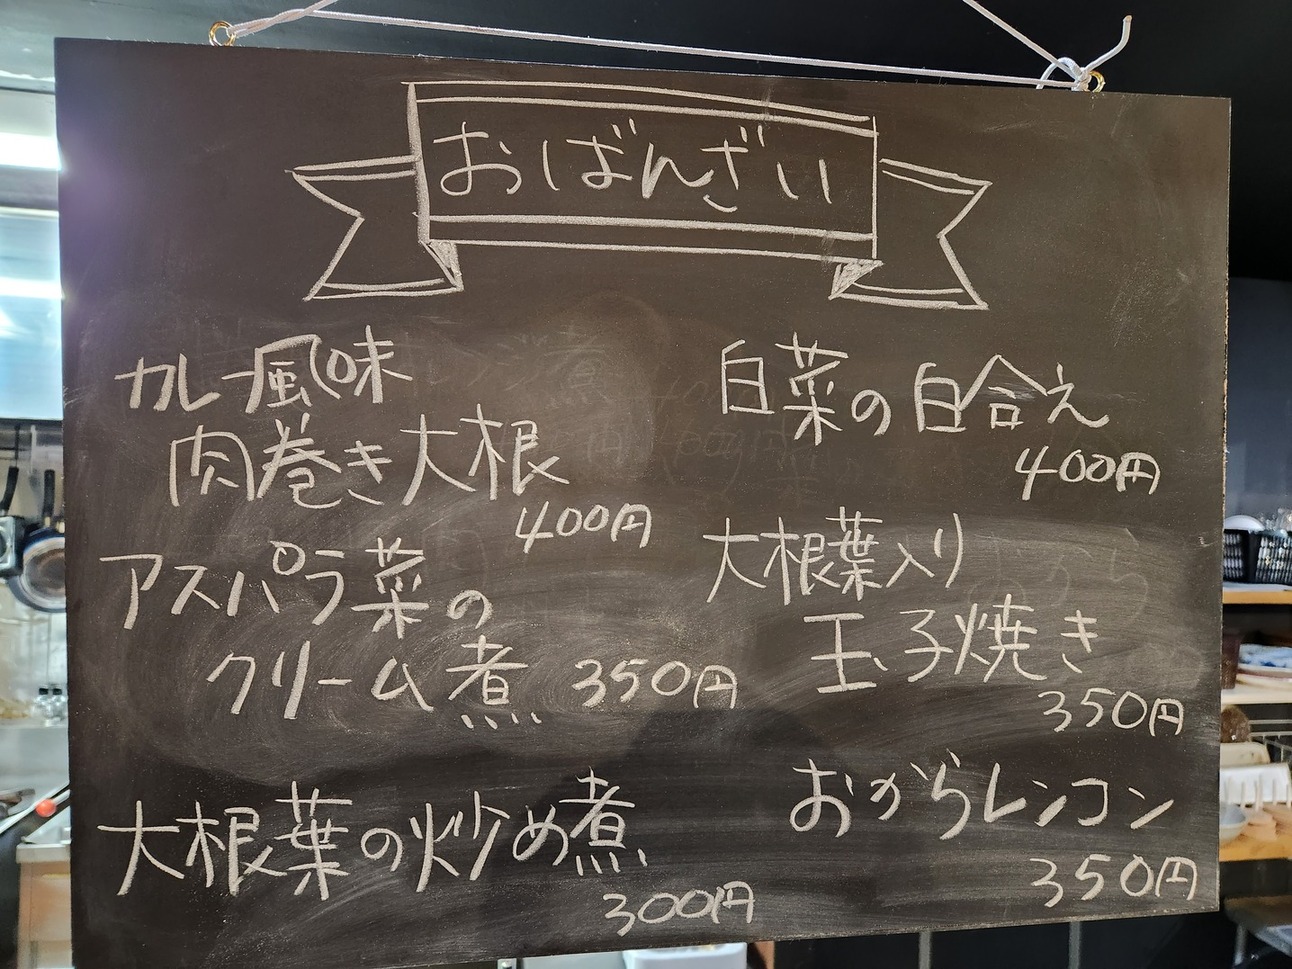 おばんざい
カレー風味
肉巻き大根
400円
アスパラ菜の
クリーム煮 350円
大根葉の炒め煮
300円
白菜の白合え
400円
大根葉入り
玉子焼き
350円
おからレンコン
350円